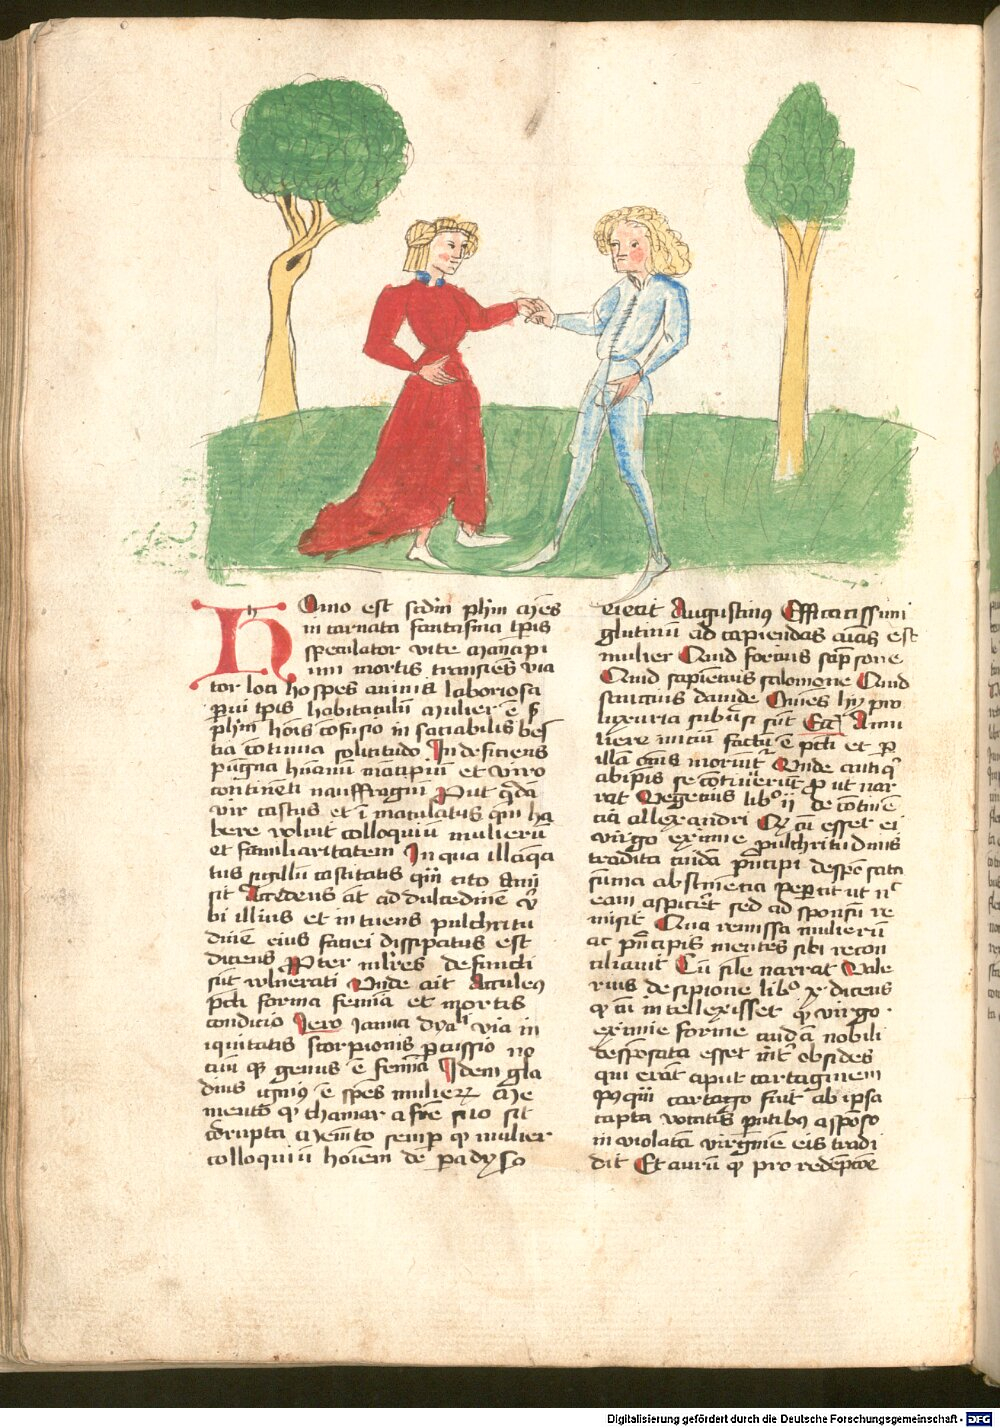 Homo est scdm phm mes
in carnata fantasma tpis
speculator vite mancipi
um mortis transiens via
tor loci hospes animus laboriosa
pui tpis habitaculu mulier e
phm hois confusio in saciabilis bes
tia continua solitudo Indeficiens
pugna humanu mancipiu et viro
continenti nauffragiu Put qda
vir castus et i maculatus qui ha
bere voluit colloquiu mulieru
et familiaritatem In qua illa
tus sigillu castitatis qui cito
sit Accedens at ad dulcedine
bi illius et intuens pulchritu
dinem eius faciei dissipatus est
dicens Ppter mlres defuncti
sut vlnerati Unde ait Acculeus
pcti forma femia et mortis
condicio Jero Janua dyali via in
iquitatis scorpionis percussio no
cuu qz genus e femia Idem gla
dius igneus e spes mulierz Me
mento qz thamar a fre suo sit
corrupta Memeto semp qz mulier
colloquiu hoiem de padyso
eiecit Augustinus Efficacissimi
glutinu ad capiendas aias est
mulier Quid forcius sampsone
Quid sapiencius salomone Quid
dauide Omes hy pro
luxuria subusi sut Ecci A mu
liere iniciu factu e pcti et p
illa oms moriutr Unde antiqz
ab ipis se continueruut put nar
rat Vegecius libo ii de contine
cia allexandri Qz cu esset ei
virgo eximie pulchritudinis
tradita cuida pncipi desponsata
suma abstinecia pepcit ut nec
eam aspiceret sed ad sponsu re
misit Qua remissa mulieru
ac pncipis mentes sibi recon
ciliauit Cu sile narrat Vale
rius de sipione libo x dicens
qz cu intellexisset qz virgo
eximie forme cuida nobili
desponsata esset int obsides
qui erat aput cartaginem
qui cartago fuit ab ipsa
capta vocatis pntibus a sponso
inviolata virgine eis tradi
dit Et auru qz pro redempcoe
Digitalisierung gefördert durch die Deutsche Forschungsgemeinschaft - DFG